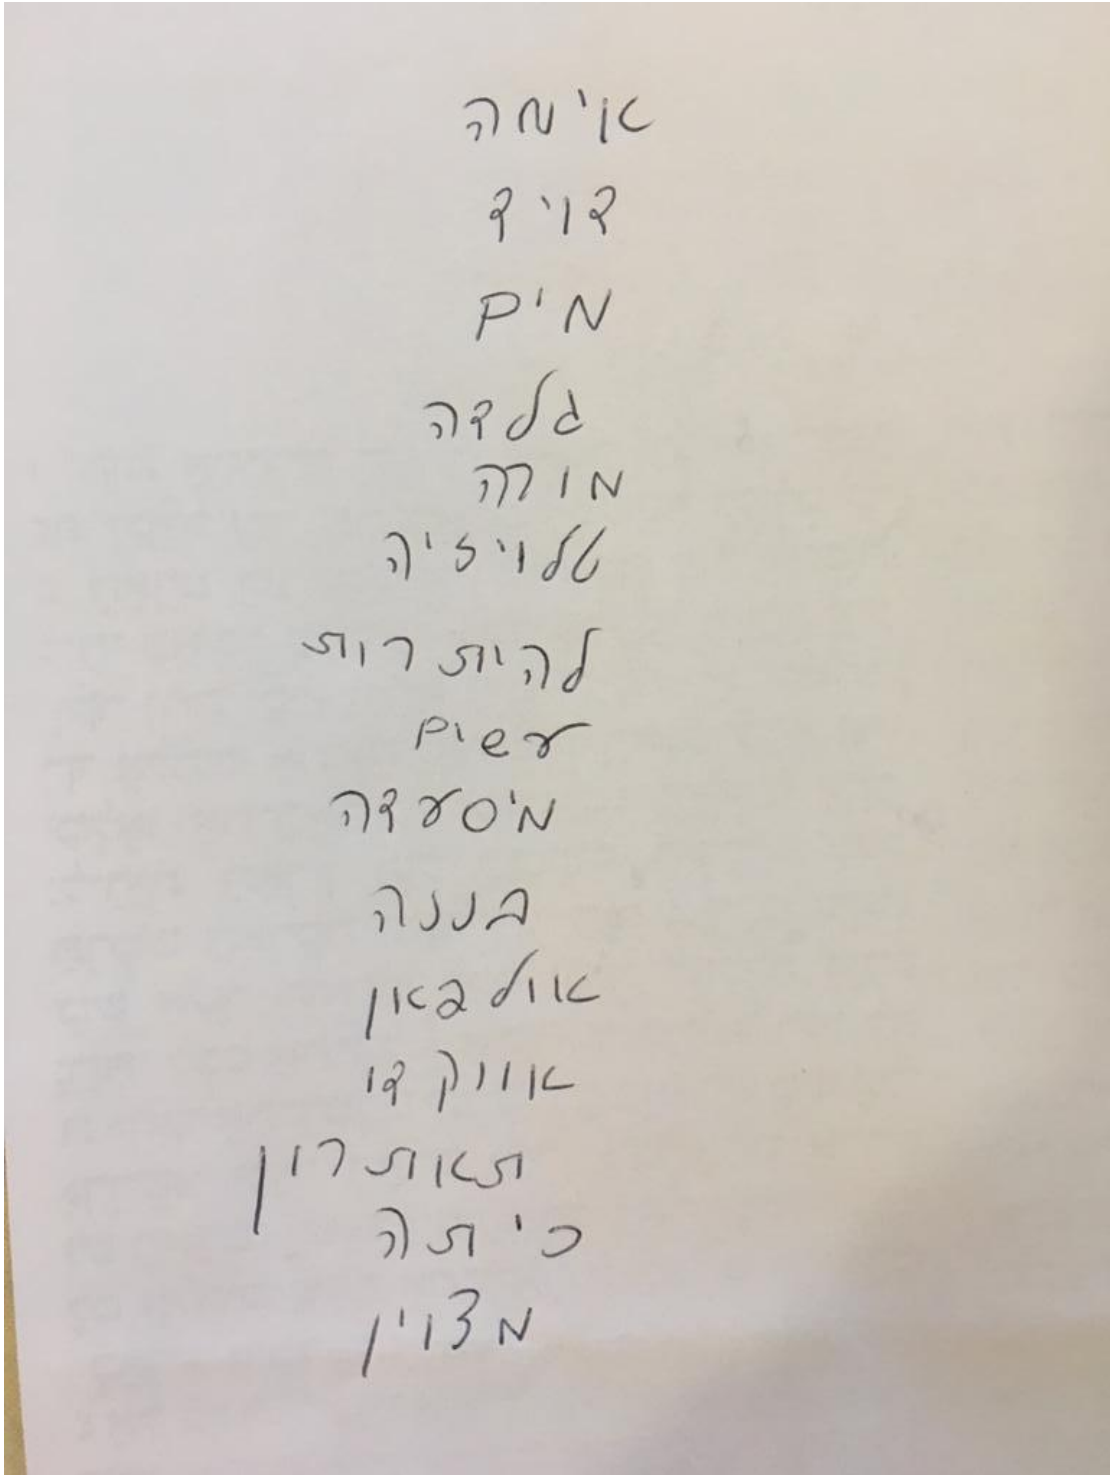 אימה
דויד
מים
גלדה
מורה
טלויזיה
להית רות
עשים
מיסעדה
בננה
אולפאון
אווקדו
תאתרון
כיתה
מצוין